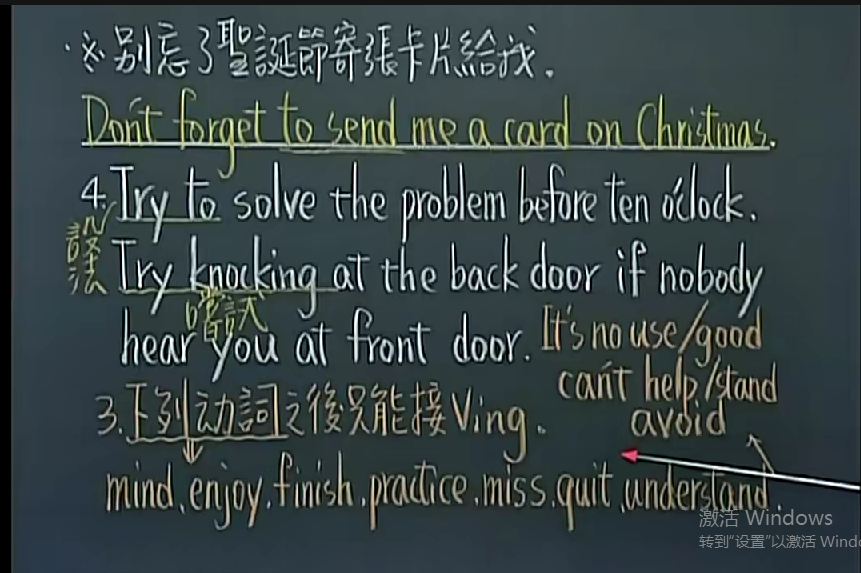 ·※別忘了聖誕節寄張卡片給我.
Don't forget to send me a card on Christmas.
4. Try to solve the problem before ten o'clock.
設法
Try knocking at the back door if nobody
嚐試
hear you at front door.
It's no use/good
can't help/stand
avoid
3.下列动詞之後只能接Ving.
mind、enjoy、finish、practice、miss、quit、understand、
激活 Windows
转到"设置"以激活 Windo